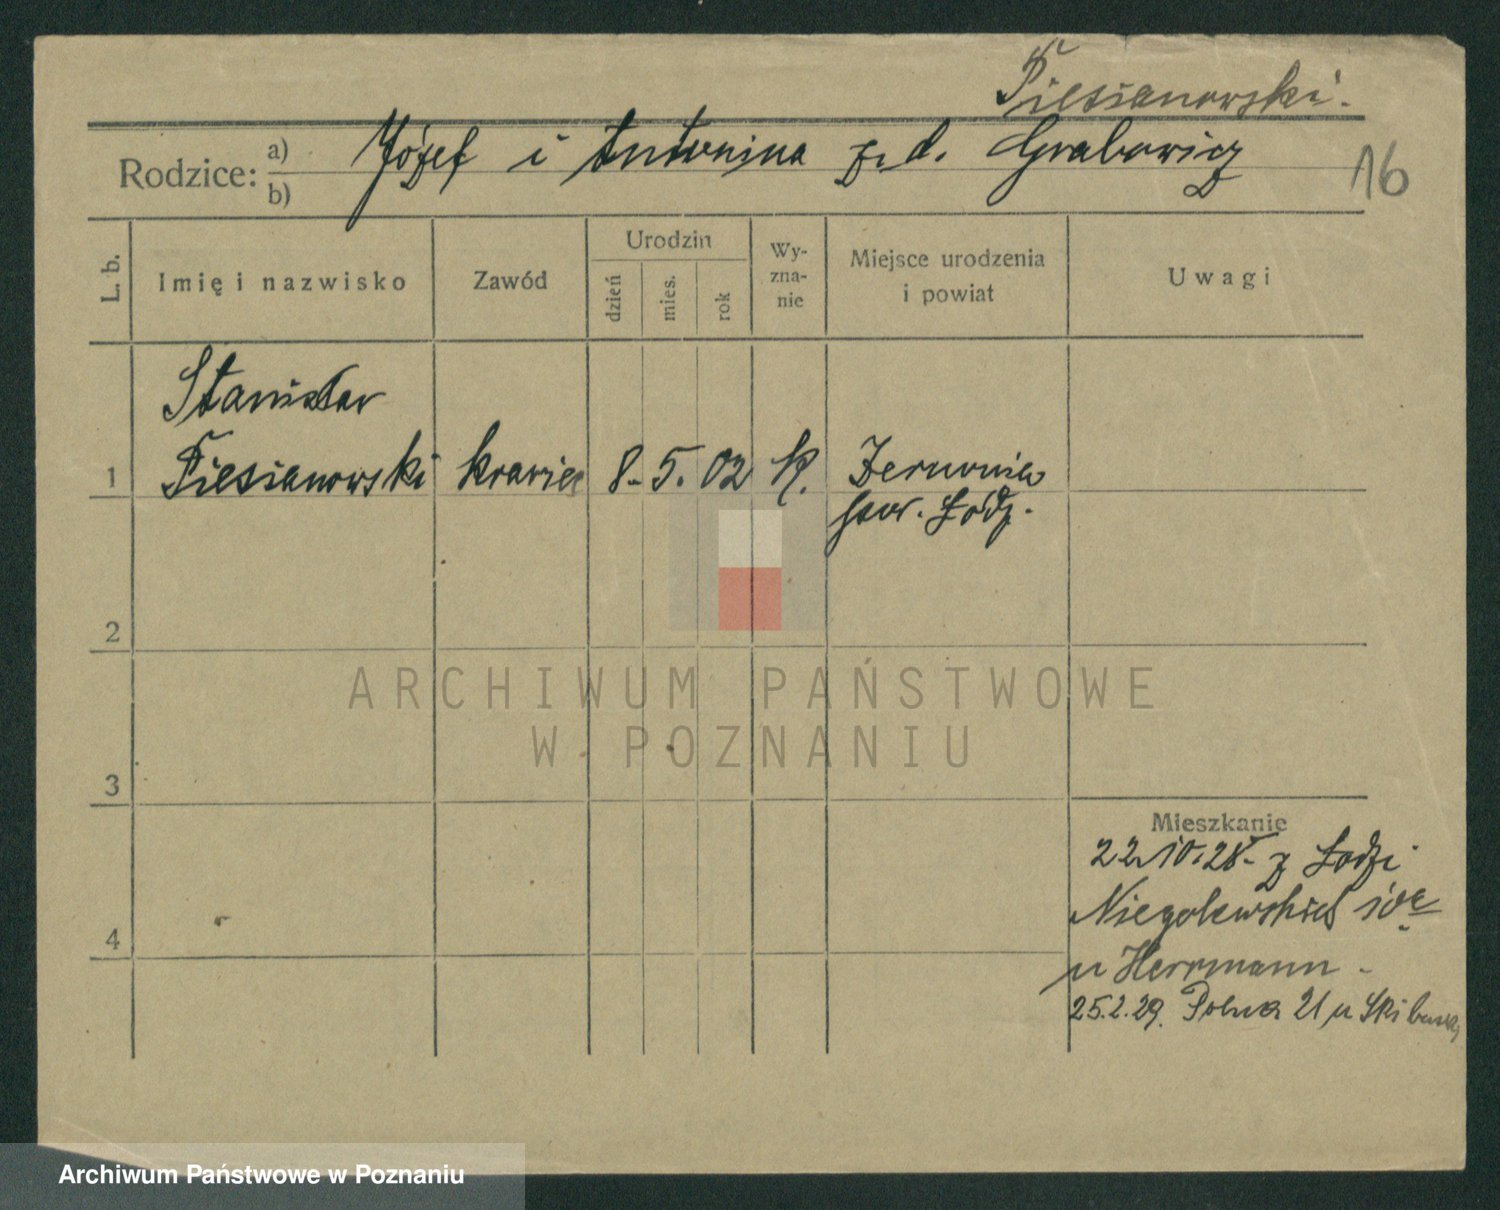 Piesianowski.
Rodzice: a) b) Józef i Antonina z d. Grabowicz
16
L. b.
Imię i nazwisko
Zawód
Urodzin
dzień
mies.
rok
Wy-
zna-
nie
Miejsce urodzenia
i powiat
Uwagi
Stanisław
1 Piesianowski krawiec 8. 5. 02 K.
pow. Łódź.
2
ARCHIWUM PAŃSTWOWE
W POZNANIU
3
Mieszkanie
22.10.28. z Łodzi
Niegolewskich
u Herrmann -
4
25.2.29. Polna 21 u
Archiwum Państwowe w Poznaniu